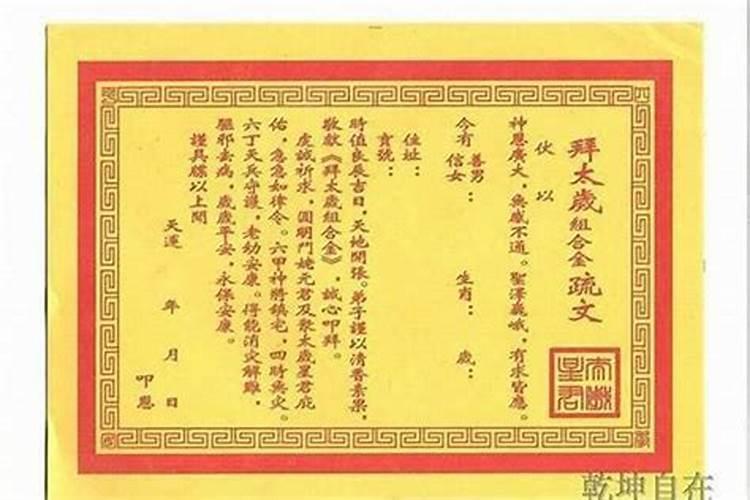 拜太歲組合金疏文
伏以
神恩廣大,無感不通。聖澤巍峨,有求皆應。
今有 善男 信女: 生肖: 歲:
住址:
寶號:
時值良辰吉日,天地開張。弟子謹以清香素果,
敬獻《拜太歲組合金》,誠心叩拜。
虔誠祈求,圓明鬥姥元君及眾太歲星君庇
佑,急急如律令。六甲神將鎮宅,四時無災。
六丁天兵守護,老幼安康。得能消災解難,
驅邪去病,歲歲平安,永保安康。
謹具牒以上聞
天運 年 月 日
叩恩
太歲星君
乾坤自在